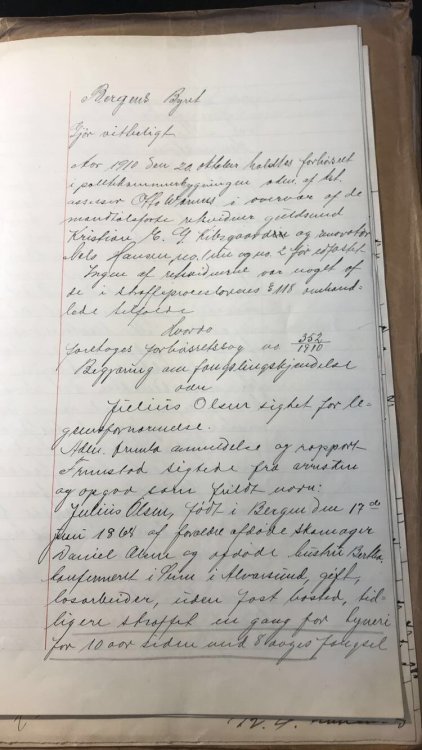 Bergens Byret
Gjør vitterligt
Aar 1910 den 20. oktober holdtes forhørsret
i politikammerbygningen adm. af
assessor Otto i overvær af de
mandtalsførte retsvidner guldsmed
Kristian E. G. og
Nels Hansen, no. 1 no. 2 før edfæstet.
Ingen af retsvidnerne var noget af
de i straffeproceslovens § 118 omhand-
lede tilfælde
Hvorda
foretoges forhørsretssag no 352/1910
Begjæring om fængslingskjendelse
over
Julius Olsen sigtet for le-
gemsfornærmelse.
Adm. fremla anmeldelse og rapport
Fremstod sigtede fra arresten
og opgav som fuldt navn:
Julius Olsen, født i Bergen den 17de
juni 1868 af forældre afdøde skomager
Daniel Olsen og afdøde hustru Berthe,
konfirmert i Seim i Alversund, gift,
løsarbeider, uden fast bosted, tid-
ligere straffet en gang for tyveri
for 10 aar siden med 8 dages fængsel